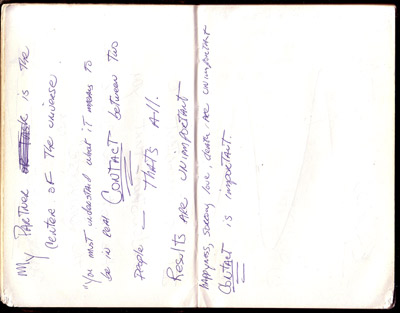 My PARTNER is THE
CENTER OF THE UNIVERSE.
"You must understand what it means to
be in real CONTACT between two
people — THATS All.
RESULTS ARE UNIMPORTANT
Happyness, success, love, death, ARE UNIMPORTANT
CONTACT is important.